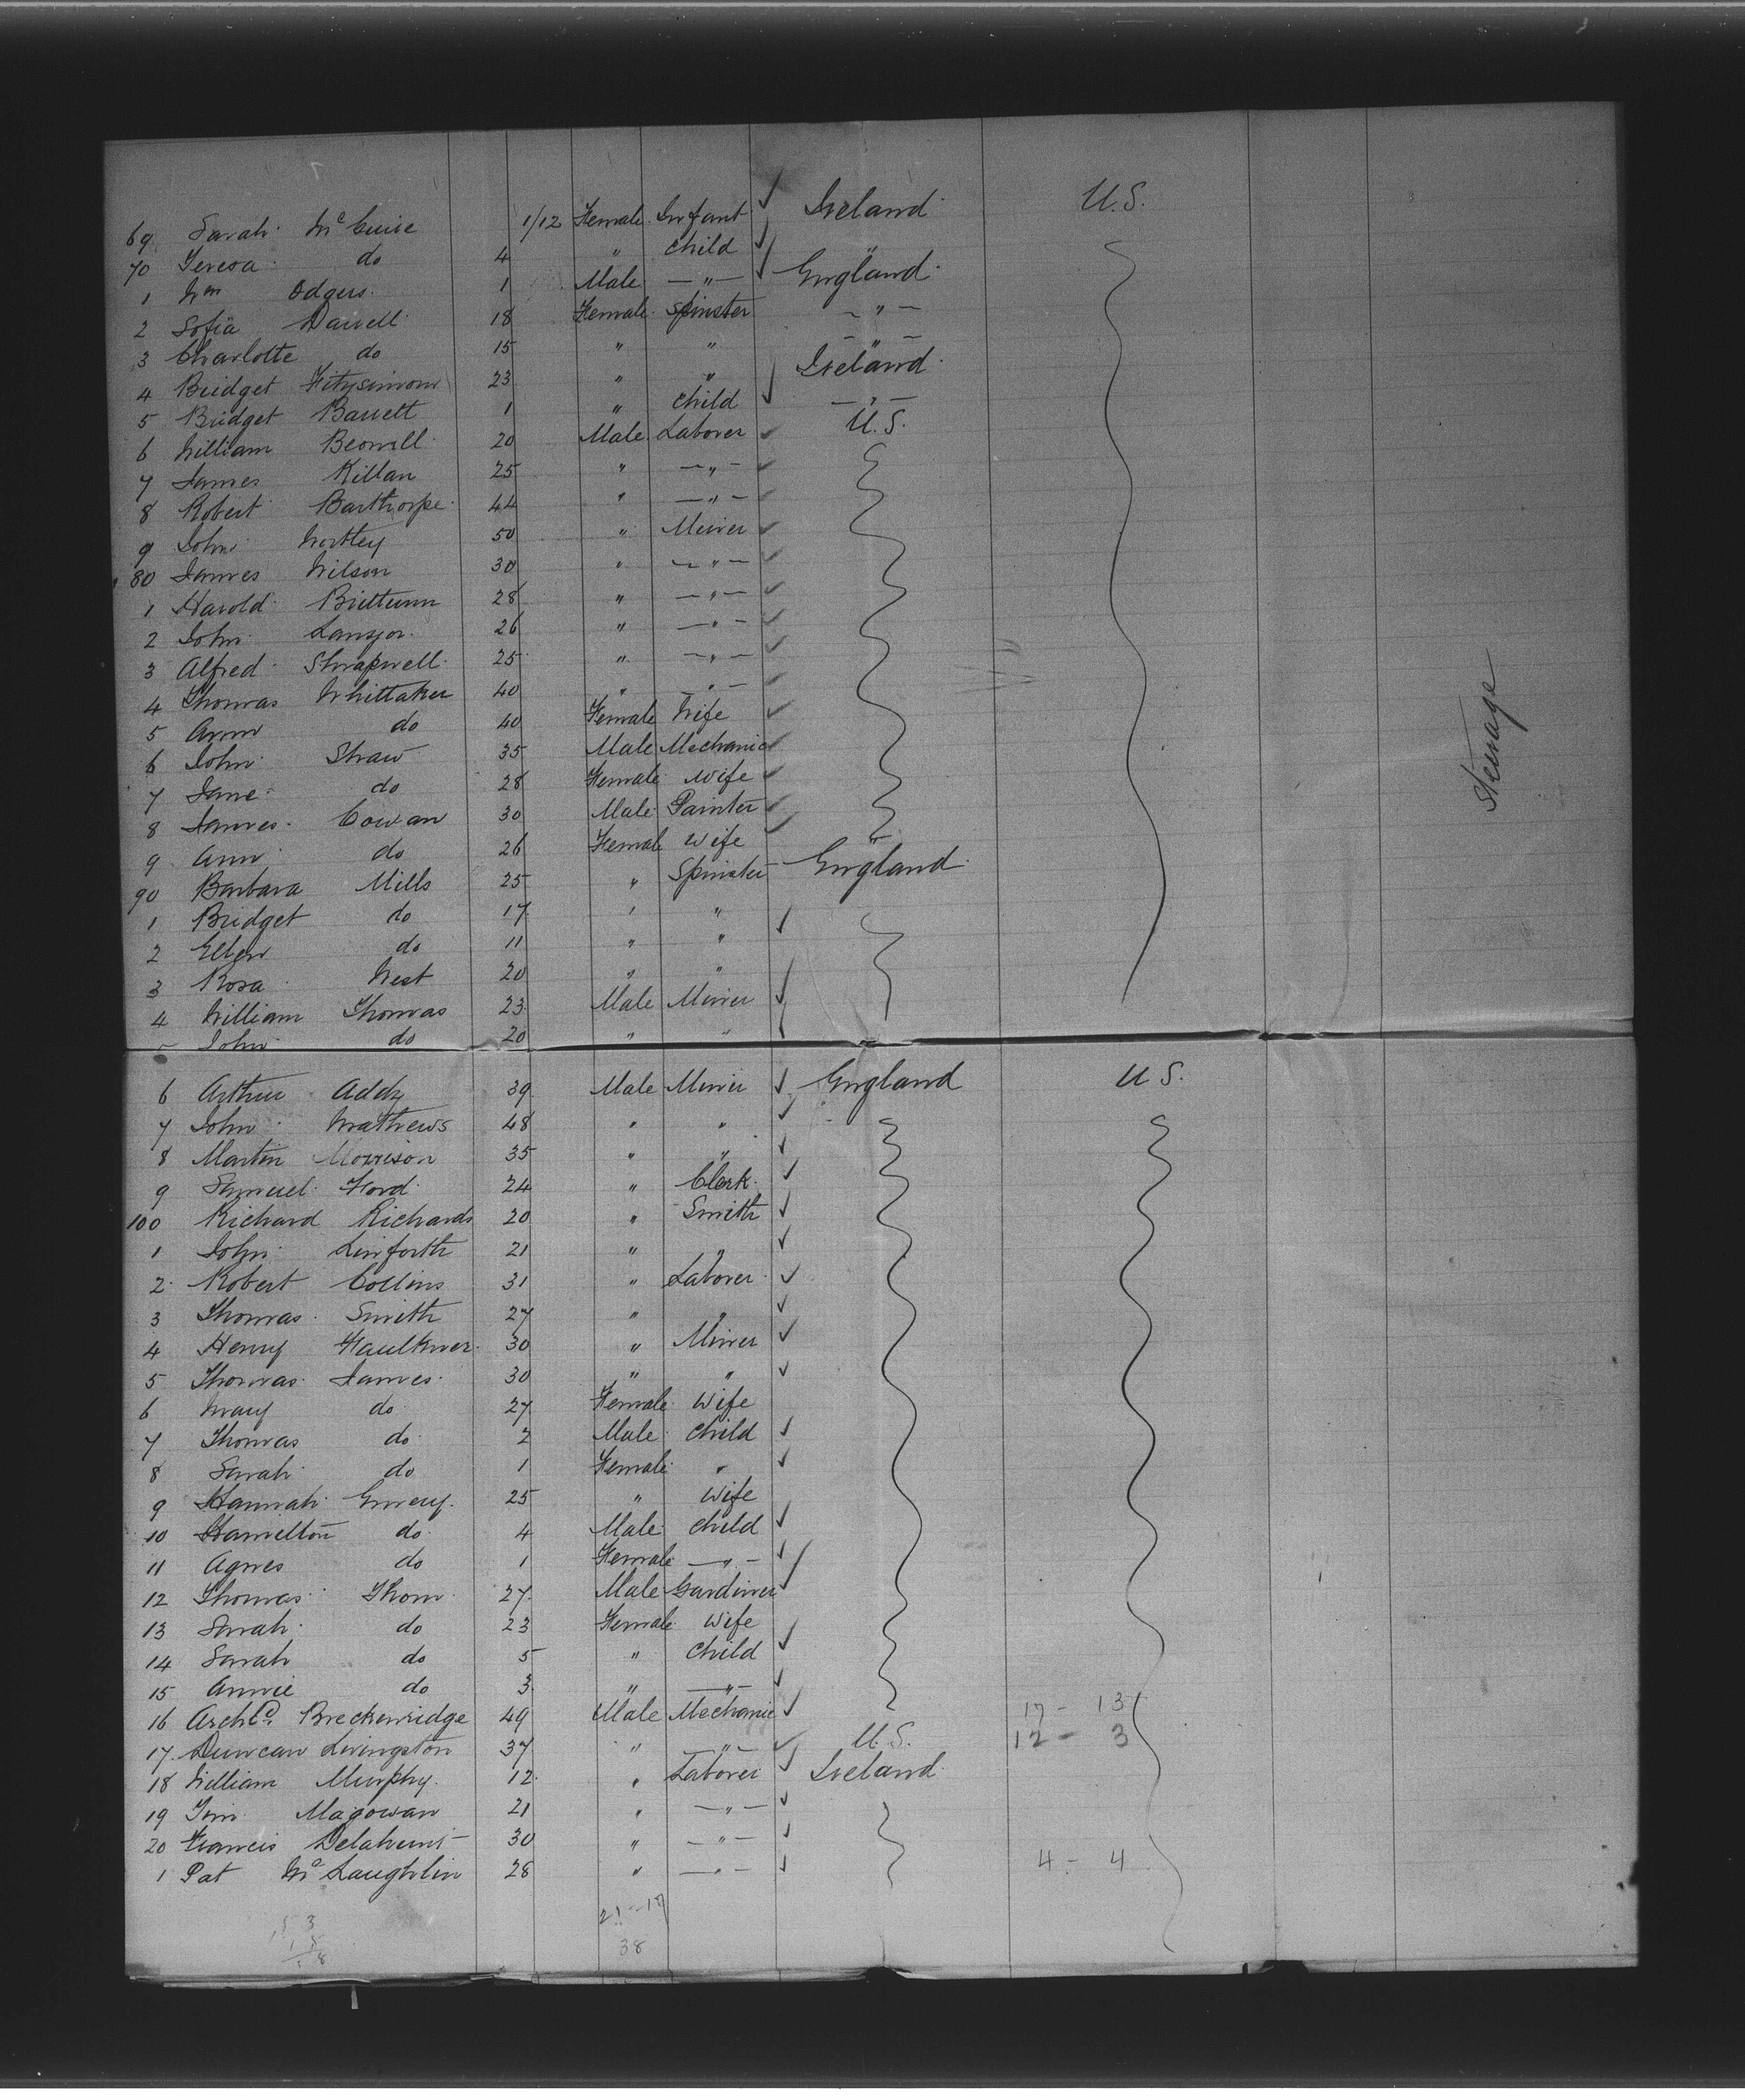 69 Sarah McGuire 1/12 Female Infant ✓ Ireland U.S.
70 Teresa do 4 " child ✓ "
1 Wm Odgers 1 Male — " — ✓ England
2 Sofia Darvell 18 Female Spinster — " —
3 Charlotte do 15 " " — " —
4 Bridget Fitzsimons 23 " " Ireland
5 Bridget Barrett 1 " child ✓ — " —
6 William 20 Male Laborer ✓ U.S.
7 James Killan 25 " — " — ✓
8 Robert Barthorpe 44 " — " — ✓
9 John Wortley 50 " Miner ✓
80 James Wilson 30 " — " — ✓
1 Harold 28 " — " — ✓
2 John 26 " — " — ✓
3 Alfred Shrapnell 25 " — " — ✓
4 Thomas Whittaker 40 " — " — ✓
5 Ann do 40 Female Wife ✓
6 John Shaw 35 Male Mechanic ✓
7 Jane do 28 Female wife ✓
8 James Cowan 30 Male Painter ✓
9 Ann do 26 Female wife ✓ "
90 Barbara Mills 25 " Spinster England
1 Bridget do 17 " " ✓
2 Ellen do 11 " "
3 Rosa West 20 " "
4 William Thomas 23 Male Miner ✓
John do 20 " " ✓
Steerage
6 Arthur Addy 39 Male Miner ✓ England U S.
7 John Mathews 48 " " ✓
8 Martin Morrison 35 " " ✓
9 Samuel Ford 24 " Clerk ✓
100 Richard Richards 20 " Smith ✓
1 John Linforth 21 " " ✓
2 Robert Collins 31 " Laborer ✓
3 Thomas Smith 27 " " ✓
4 Henry Faulkner 30 " Miner ✓
5 Thomas James 30 " " ✓
6 Mary do 27 Female Wife
7 Thomas do 2 Male child ✓
8 Sarah do 1 Female " ✓
9 Hannah 25 " Wife
10 Hamelton do 4 Male child ✓
11 Agnes do 1 Female — " — ✓
12 Thomas Thom 27 Male Gardiner ✓
13 Sarah do 23 Female Wife
14 Sarah do 5 " Child ✓
15 Annie do 3 " — " — ✓
16 Archld Breckenridge 49 Male Mechanic ✓ 17 - 13
17 Duncan Livingston 37 " — " — ✓ U.S. 12 - 3
18 William Murphy 12 " Laborer ✓ Ireland
19 Jim Magowan 21 " — " — ✓
20 Francis Delahunt 30 " — " — ✓
1 Pat McLaughlin 28 " — " — ✓ 4 - 4
21 - 17
38